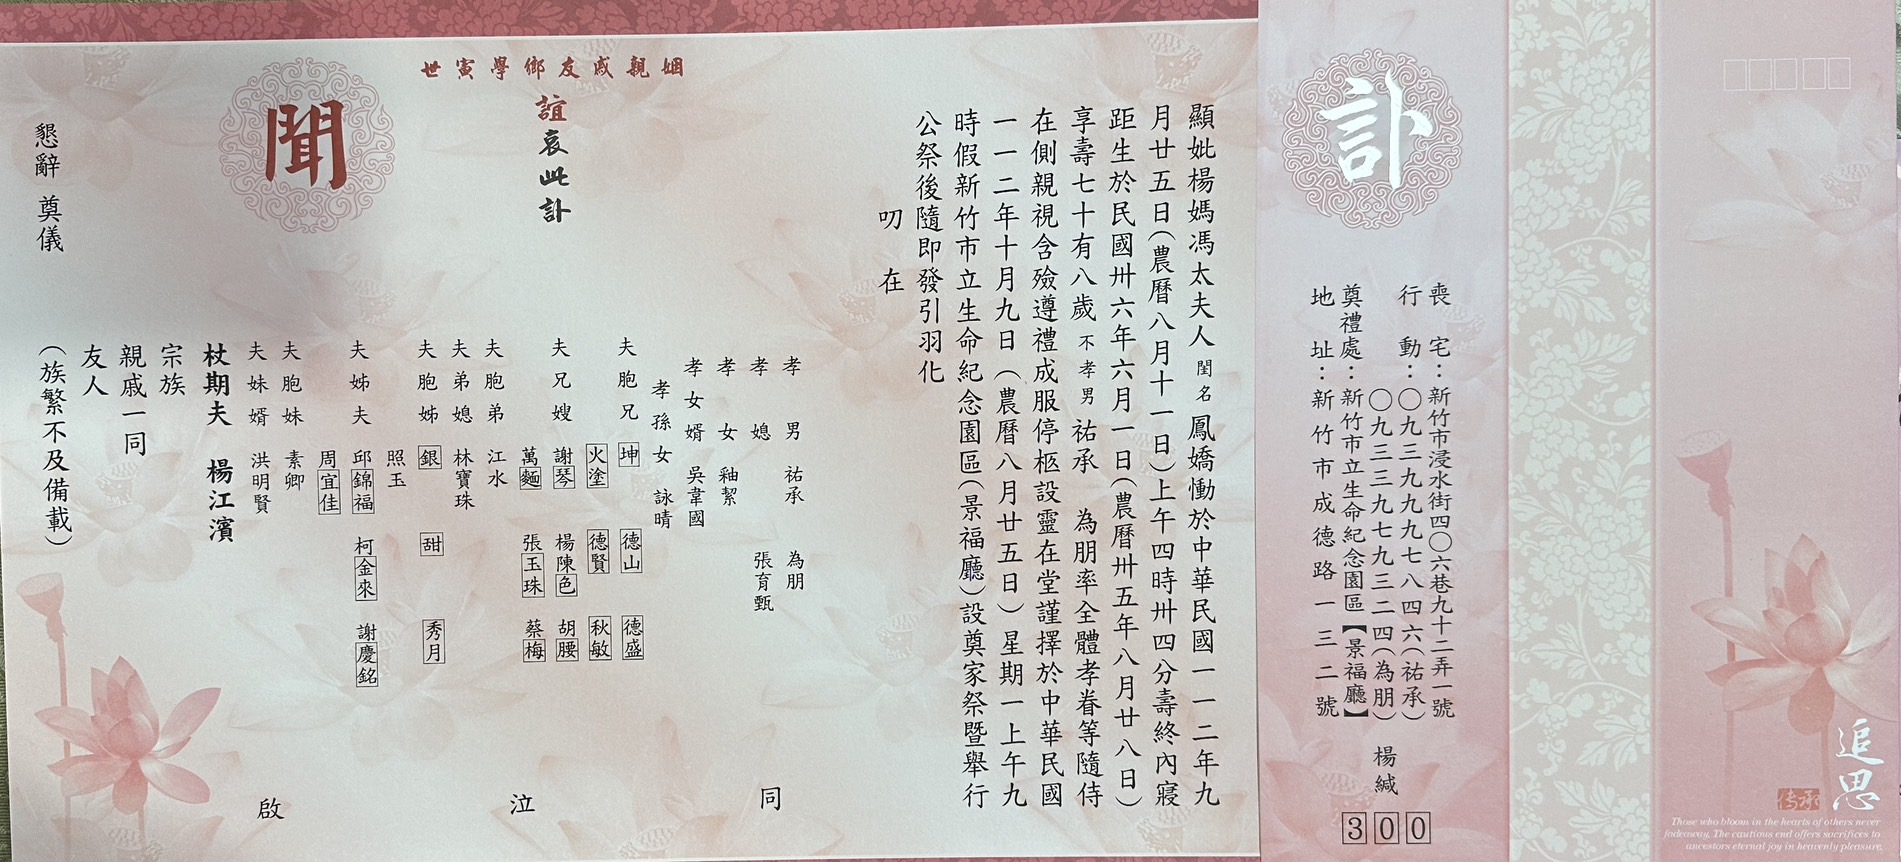 追思
传承
Those who bloom in the hearts of others never
fadeaway. The cautious end offers sacrifices to
ancestors eternal joy in heavenly pleasure.
訃
喪宅：新竹市浸水街四〇六巷九十二弄一號
行動：〇九三九九九七八四六（祐承）
〇九三三九七九三二四（為朋）
奠禮處：新竹市立生命紀念園區【景福廳】
地址：新竹市成德路一三二號
楊緘
300
顯妣楊媽馮太夫人閨名鳳嬌慟於中華民國一一二年九
月廿五日（農曆八月十一日）上午四時卅四分壽終內寢
距生於民國卅六年六月一日（農曆卅五年八月廿八日）
享壽七十有八歲不孝男祐承 為朋率全體孝眷等隨侍
在側親視含殮遵禮成服停柩設靈在堂謹擇於中華民國
一一二年十月九日（農曆八月廿五日）星期一上午九
時假新竹市立生命紀念園區（景福廳）設奠家祭暨舉行
公祭後隨即發引羽化
叨在
姻親戚友鄉學寅世
誼哀此訃
聞
孝男 祐承 為朋
孝媳 張育甄
孝女 釉絜
孝女婿 吳韋國
孝孫女 詠晴
夫胞兄 坤 德山 德盛
火塗 德賢 秋敏
夫兄嫂 謝琴 楊陳色 胡腰
萬麵 張玉珠 蔡梅
夫胞弟 江水
夫弟媳 林寶珠
夫胞姊 銀 甜 秀月
照玉
夫姊夫 邱錦福 柯金來 謝慶銘
周宜佳
夫胞妹 素卿
夫妹婿 洪明賢
杖期夫 楊江濱
宗族
親戚一同
友人
（族繁不及備載）
同
泣
啟
懇辭 奠儀